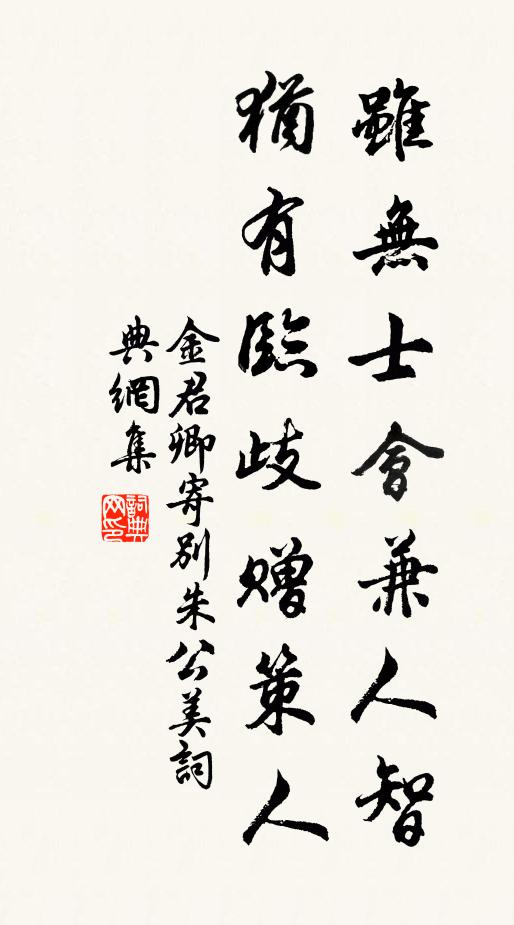 雖無士會兼人智
猶有臨歧贈策人
金君卿寄別朱公美詞
典網集
詞典
网印